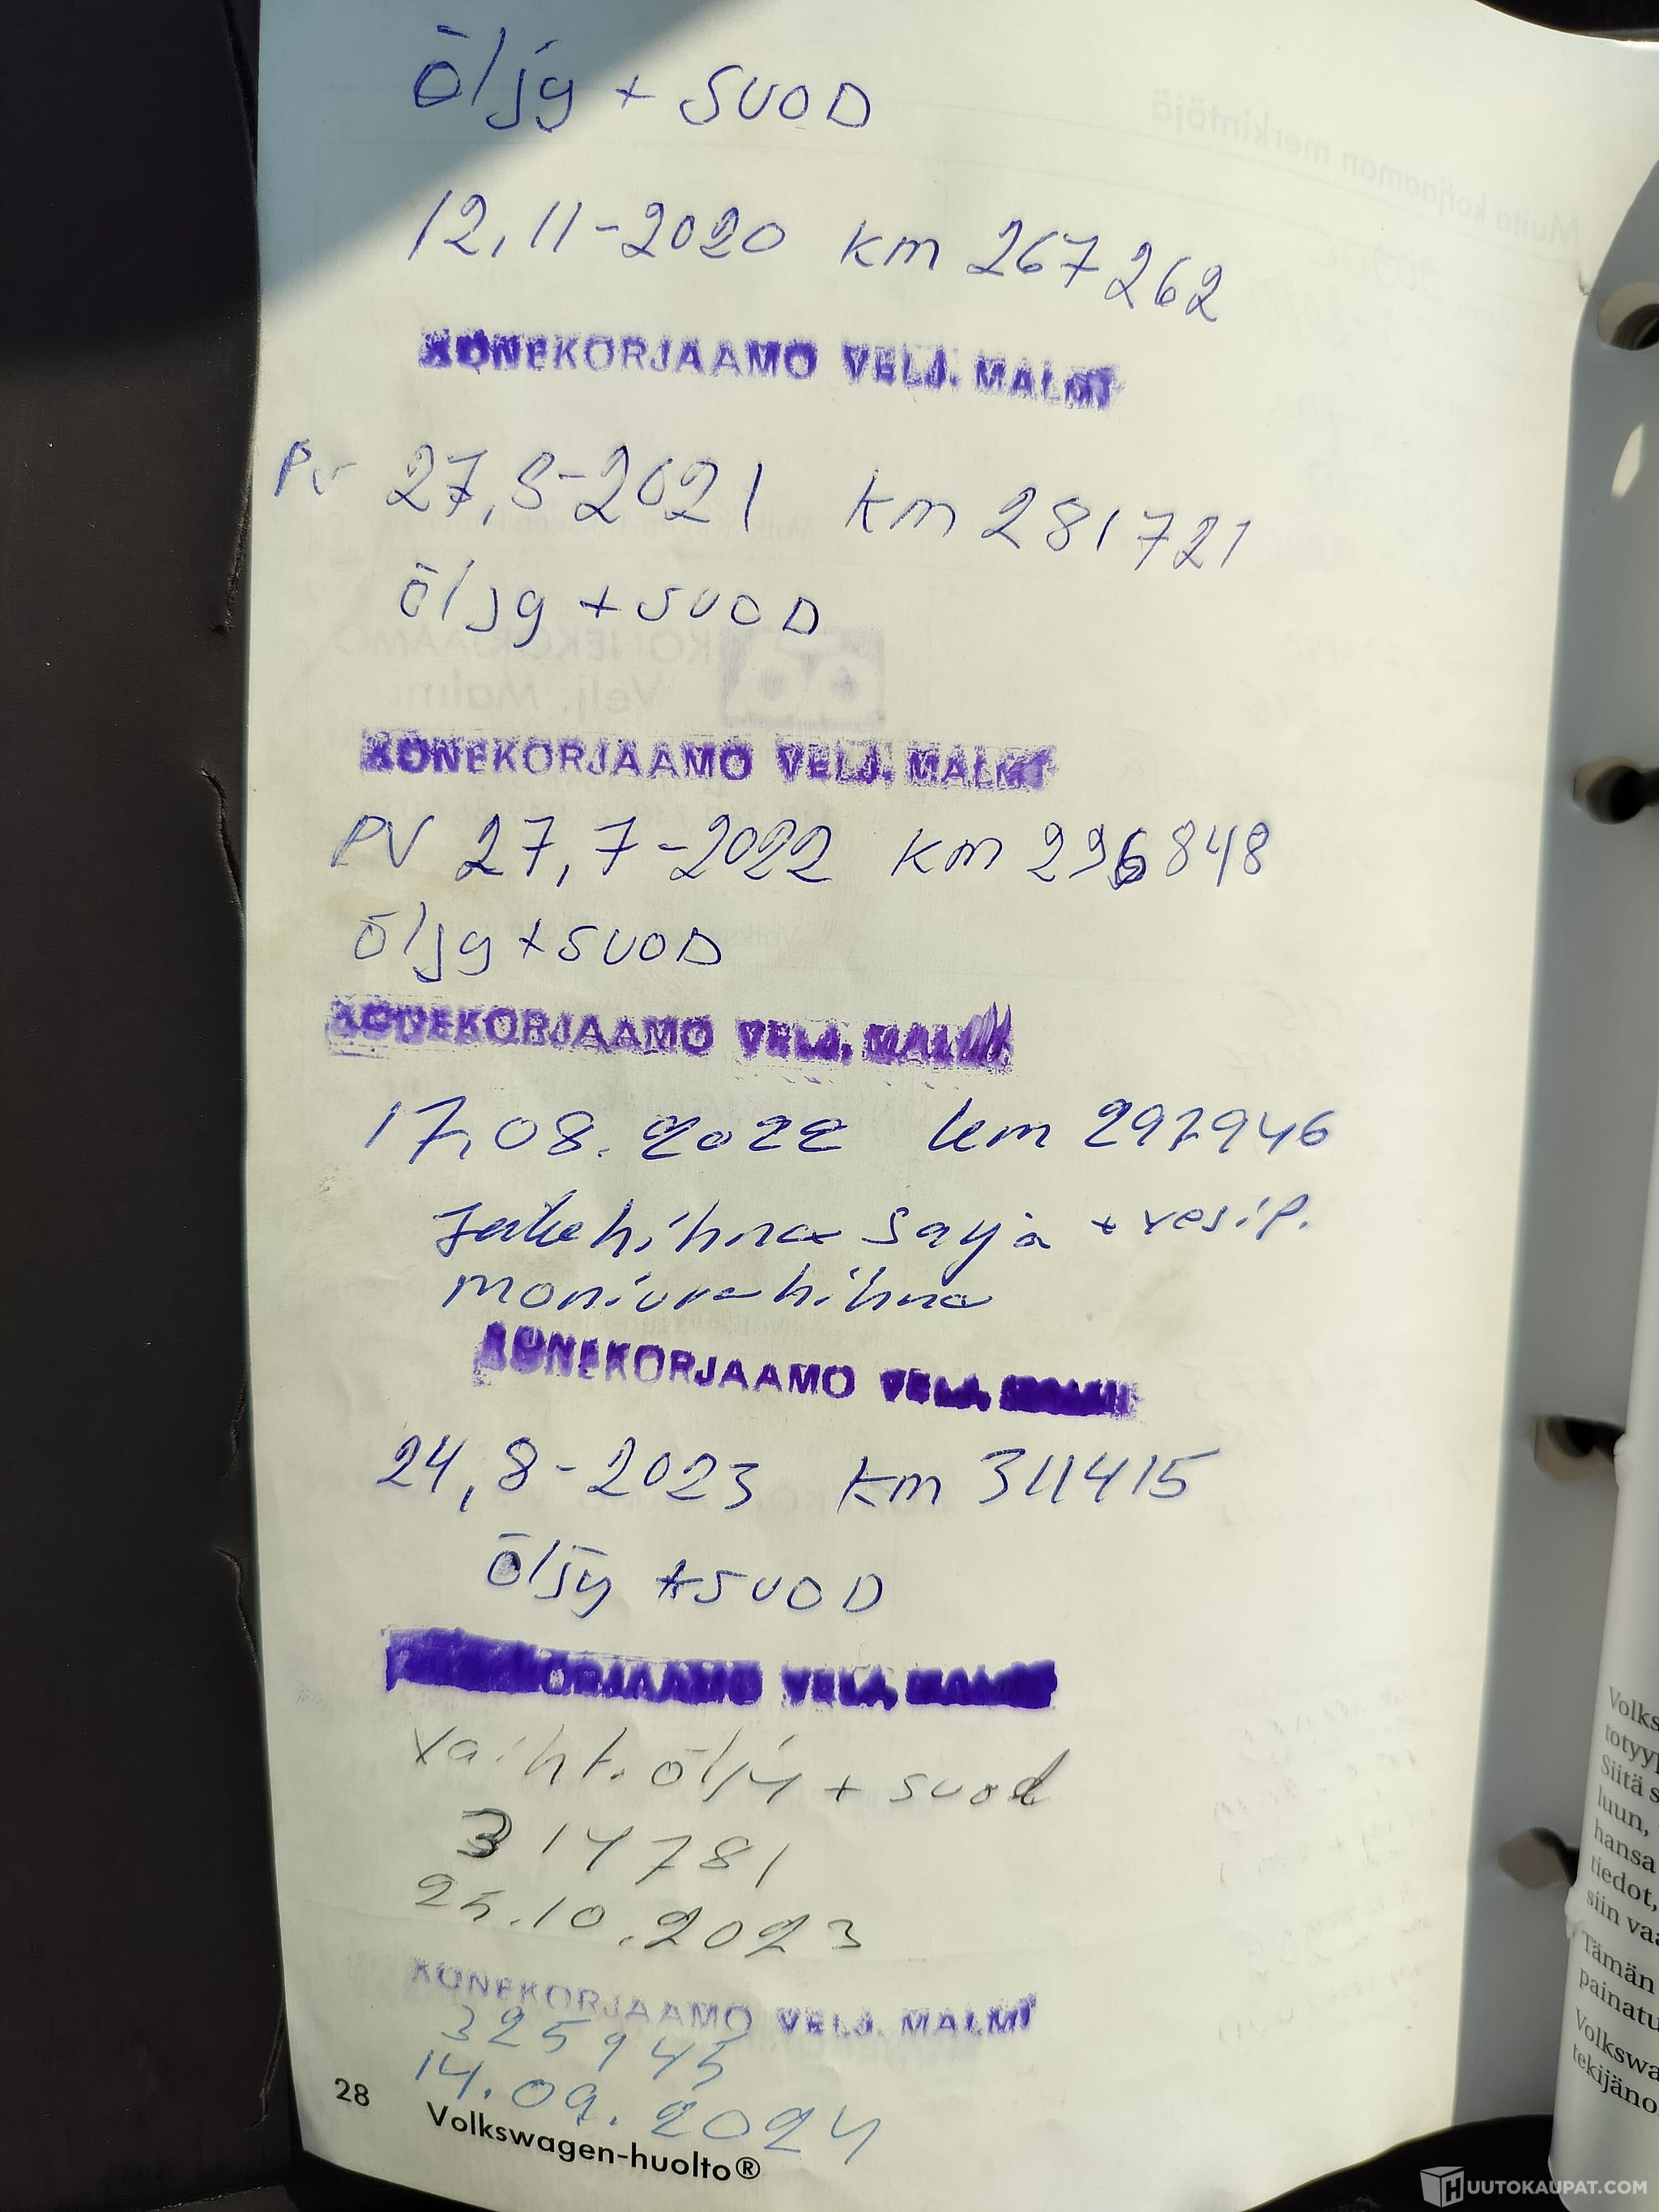 öljy + SUOD
12,11-2020 km 267262
KONEKORJAAMO VELJ. MALMI
PV 27,8-2021 km 281721
öljy + SUOD
KONEKORJAAMO VELJ. MALMI
PV 27,7-2022 km 296848
öljy + SUOD
KONEKORJAAMO VELJ. MALMI
17.08.2022 km 297946
Jakohihna sarja + vesip.
moniurahihna
KONEKORJAAMO VELJ. MALMI
24,8-2023 km 311415
öljy + SUOD
KONEKORJAAMO VELJ. MALMI
vaiht. öljy + suod
314781
25.10.2023
KONEKORJAAMO VELJ. MALMI
325945
14.09.2024
28 Volkswagen-huolto®
Muita korjaamon merkintöjä
KONEKORJAAMO
Velj. Malmi
Volks
totyyp
Siitä s
luun,
hansa
tiedot,
siin vaa
Tämän
painatu
Volkswa
tekijäno
HUUTOKAUPAT.COM